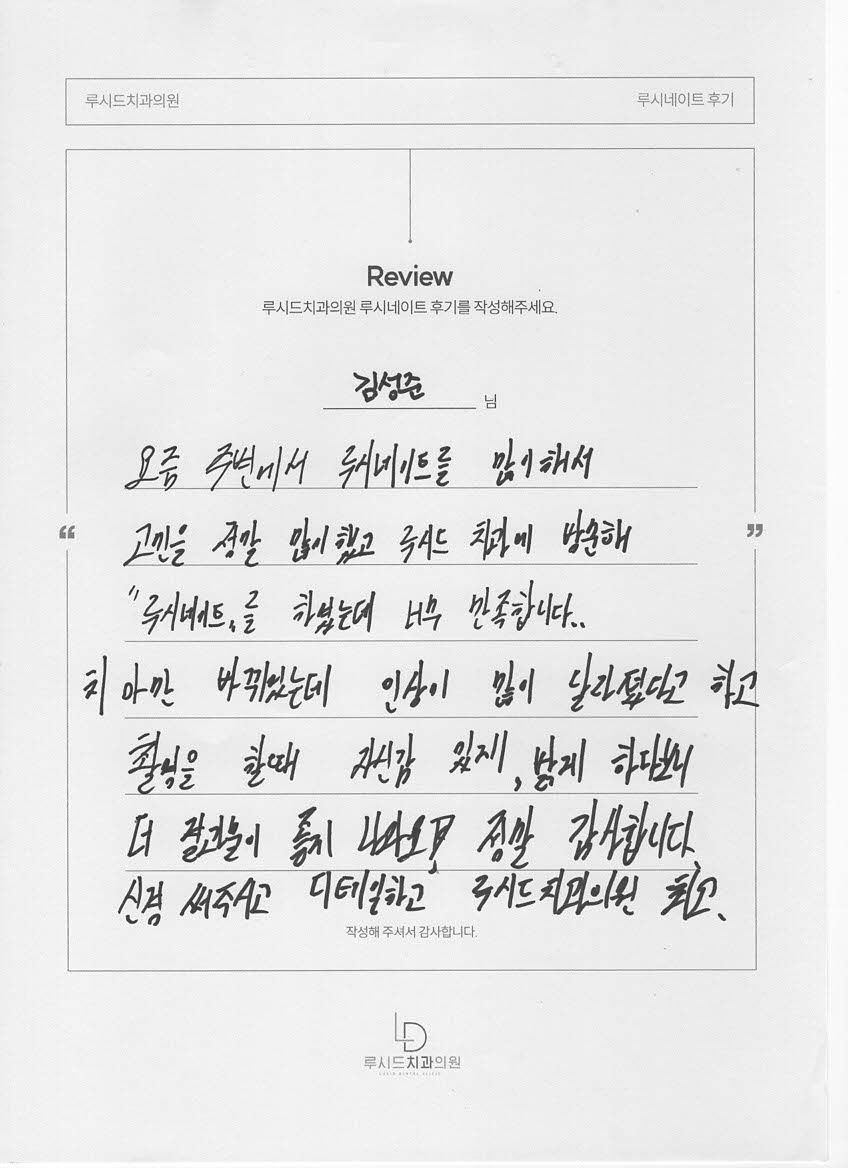 루시드치과의원
루시네이트 후기
Review
루시드치과의원 루시네이트 후기를 작성해주세요.
김성준 님
요즘 주변에서 루시네이트를 많이해서
“ 고민을 정말 많이했고 루시드 치과에 방문해 ”
"루시네이트"를 하였는데 너무 만족합니다..
치아만 바뀌었는데 인상이 많이 달라졌다고 하고
촬영을 할때 자신감 있게, 밝게 하다보니
더 결과물이 좋게 나와요! 정말 감사합니다.
신경 써주시고 디테일하고 루시드치과의원 최고.
작성해 주셔서 감사합니다.
LD
루시드치과의원
LUCID DENTAL CLINIC